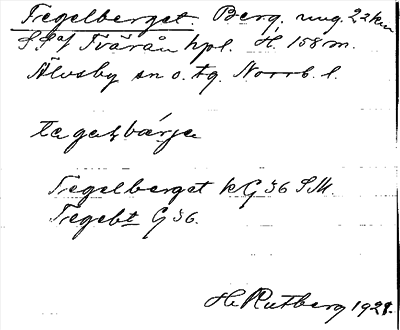 Tegelberget. Berg, ung. 22 km
S.S. af Tvärån hpl. H. 158 m.
Älvsby sn o. tg. Norrb. l.
tegelbärje
Tegelberget kG 36 S.M.
Tegelbt G 36.
H. Rutberg 1921.